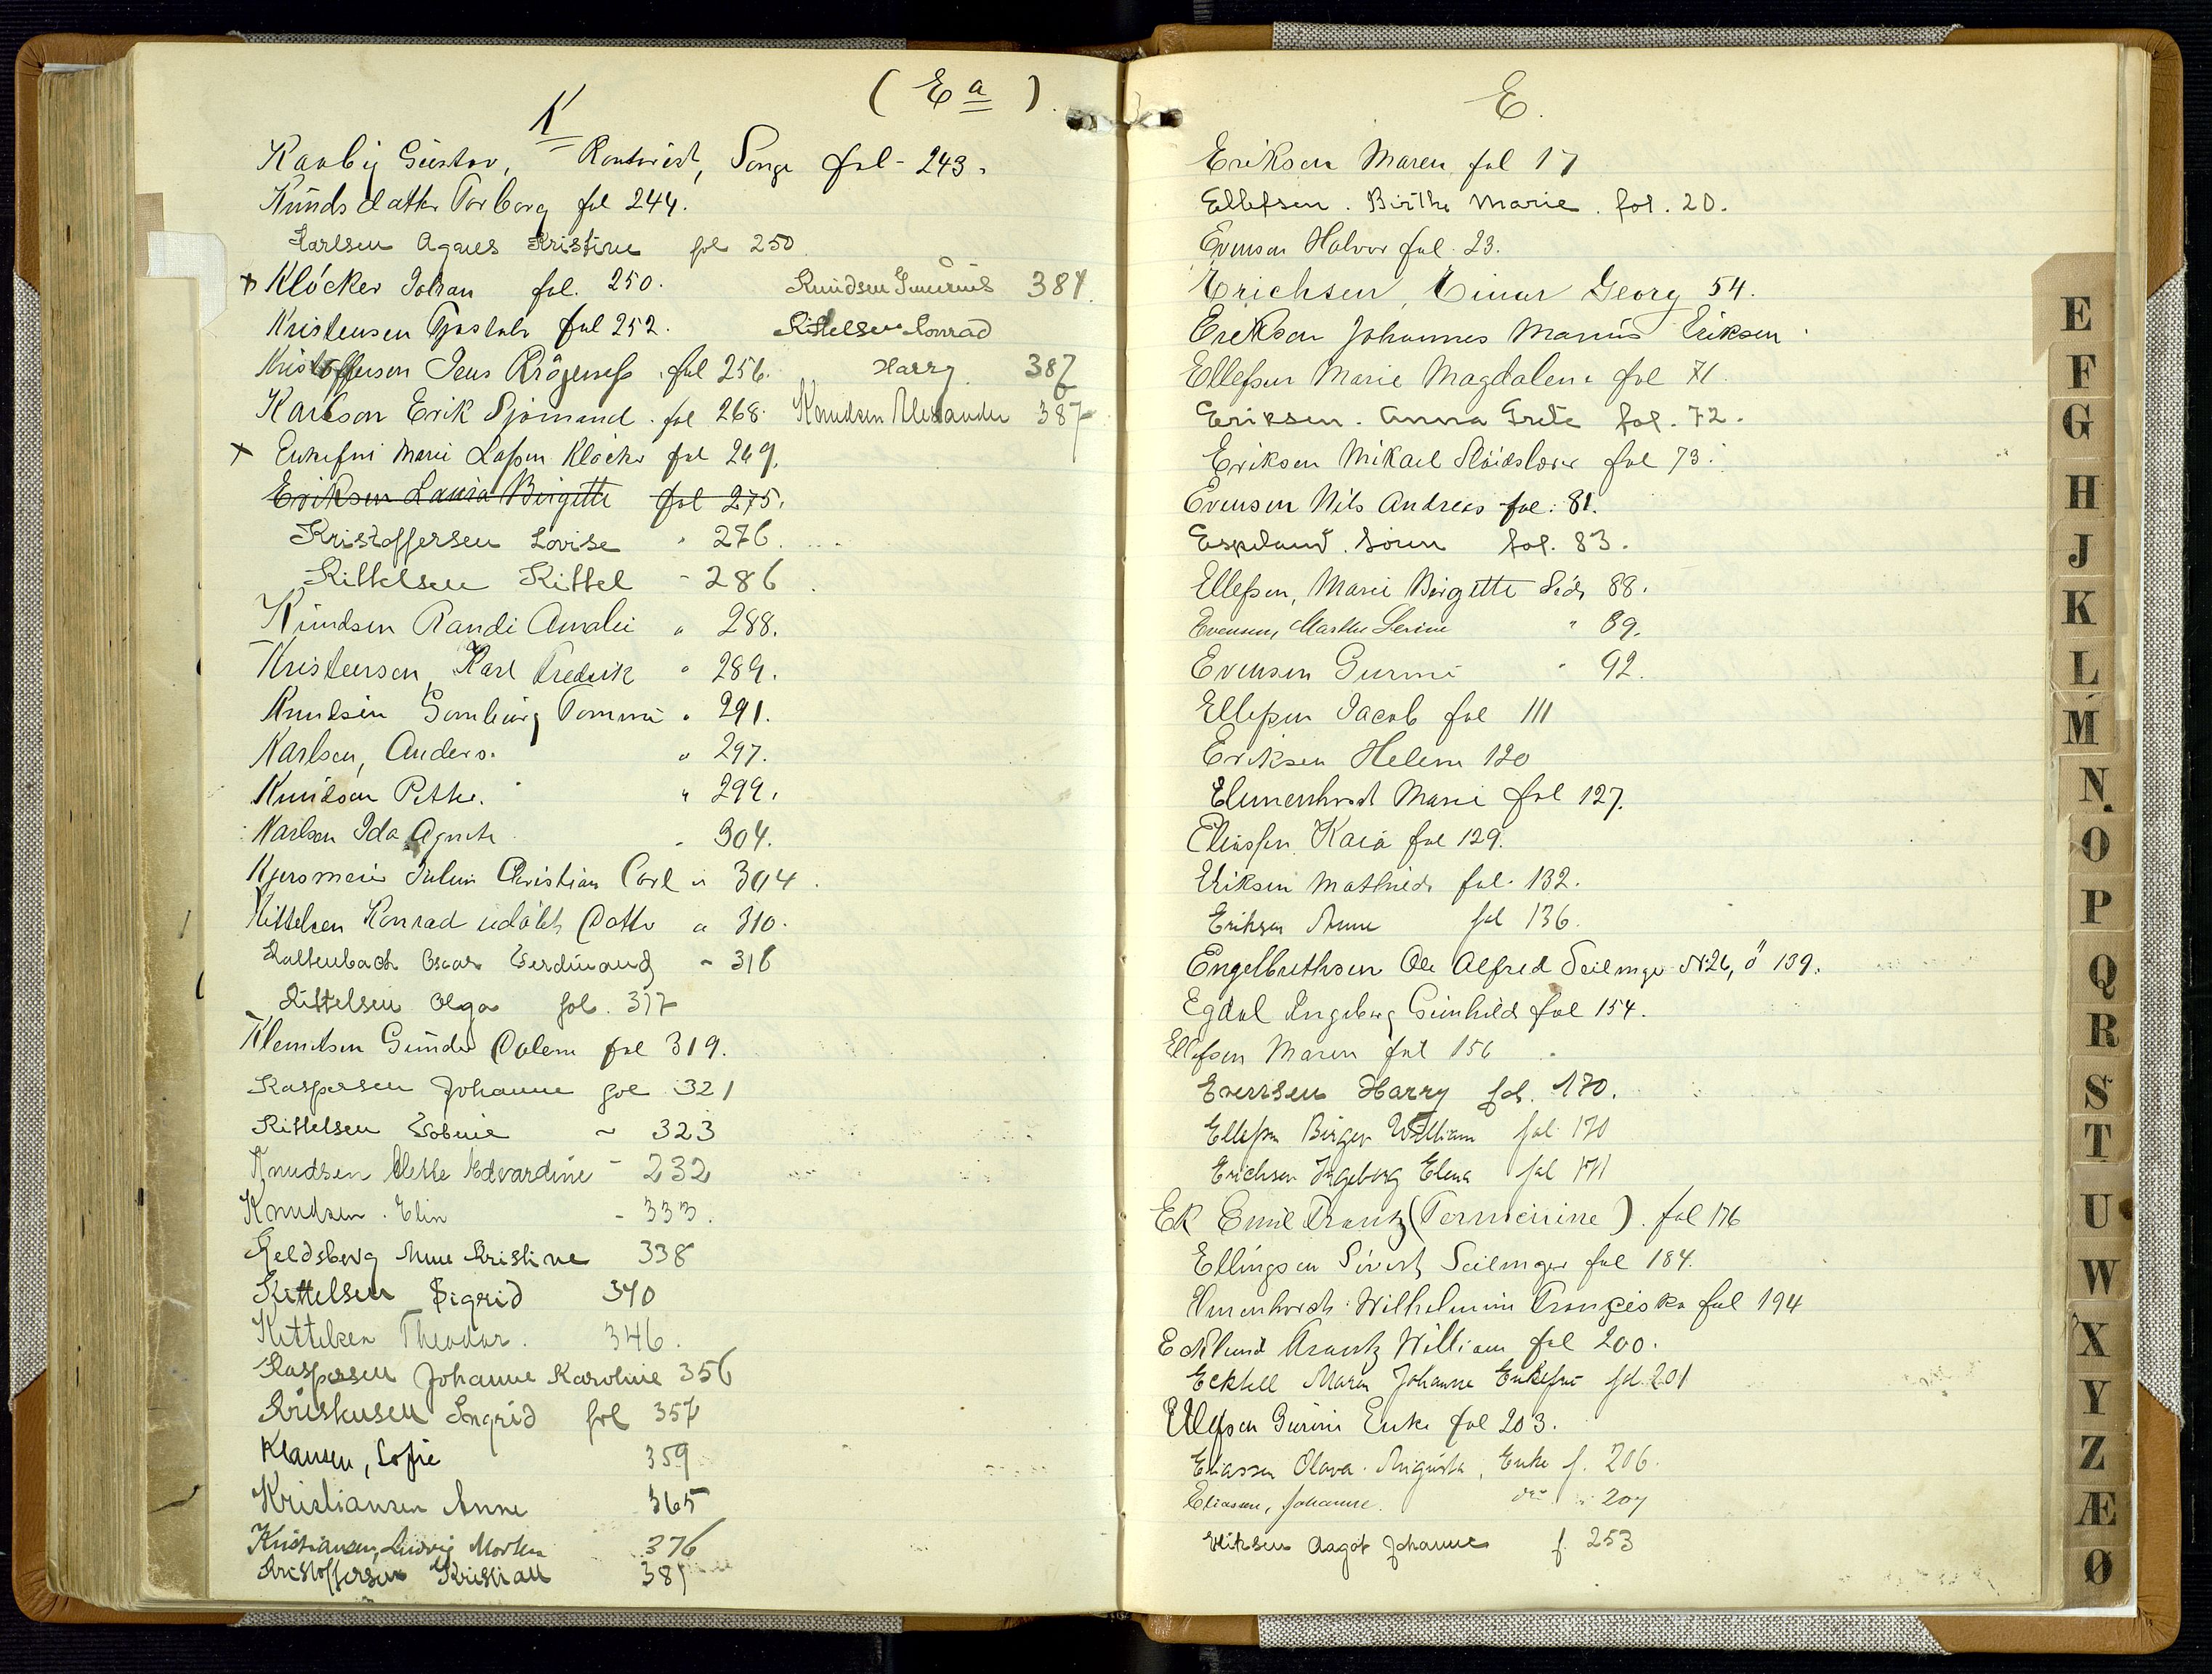 ( Ea )
K
Kaaby Gustav, Rentvist, Songe fol - 243.
Knudsdatter Torborg fol 244.
Karlsen Agnes Kristine fol 250
+ Klöcker Johan fol. 250.
Kristensen Gustals fol 252.
Kristoffersen Jens Krögenes fol 256.
Karlson Erik Sjömand fol 268.
+ Enkefru Marie Lassen Klöcker fol 269.
Eriksen Laura Birgitte fol 275.
Kristoffersen Lovise " 276.
Kittelsen Kittel - 286
Knudsen Randi Amalie " 288.
Kristensen, Karl Fredrik " 289.
Knudsen Gomborg Tomine " 291.
Karlsen, Anders. " 297.
Knudsen Pethe. " 299.
Karlsen Ida Agnete - 304.
Kjersmeier Julius Christian Carl " 304.
Kittelsen Konrad udöbt Datter " 310.
Kaltenbach Oscar Ferdinand - 316
Kittelsen Olga fol. 317
Klemitsen Gunder Dalene fol 319.
Kaspersen Johanne fol 321
Kittelsen Tobine ~ 323
Knudsen Mette Edvardine - 232
Knudsen . Elin - 333.
Keldsberg Anne Kristine 338
Kittelsen Sigrid 340
Kittelsen Theodor. 346.
Kaspersen Johanne Karoline 356
Kristensen Ingrid fol 357
Klausen, Sofie 359
Kristiansen Anne 365
Kristiansen, Ludvig Morten 376
Kristoffersen Kristian 381
Knudsen 381.
Kittelsen Konrad
Harry 387
Knudsen Alexander 387
E.
Eriksen Maren fol 17
Ellefsen . Birthe Marie . fol. 20.
Evensen Halvor fol. 23.
Erichsen, Einar Georg 54.
Erikson Johannes Marius Eriksen
Ellefsen Marie Magdalene fol 71.
Eriksen . Anna Grete fol. 72.
Eriksen Mikael Slöidslærer fol 73.
Evensen Nils Andreas fol. 81.
Espeland . Sören fol. 83.
Ellefsen, Marie Birgitte 88.
Evensen, Marthe Serine " 89.
Evensen Gurine " 92.
Ellefsen Jacob fol 111
Eriksen Helene 120
Elmenhorst Marie fol 127.
Eliassen Kaia fol 129.
Eriksen Mathilde fol. 132.
Eriksen Anne fol 136.
Engelbrethsen Ole Alfred Seilmager N 26, ö 139.
Egdal Ingeborg Gunhild fol 154.
Ellefsen Maren fol 156
Evensen Harry fol. 170.
Ellefsen Birger William fol 170
Erichsen Ingeborg Elena fol 171
Ek Emil Frantz (Fermeirine). fol 176
Ellingsen Sivert Seilmager fol 184.
Elmenhorst Wilhelmine Franciska fol 194
Ecklund Frantz William fol 200.
Ecktell Maren Johanne Enkefru fol. 201
Ellefsen Gurine Enke fol 203.
Eliassen Olava Augusta, Enke f. 206.
Eliassen, Johanne. do " 207
Eriksen Aagot Johanne f. 253
E
F
G
H
J
K
L
M
N
O
P
Q
R
S
T
U
W
X
Y
Z
Æ
Ø